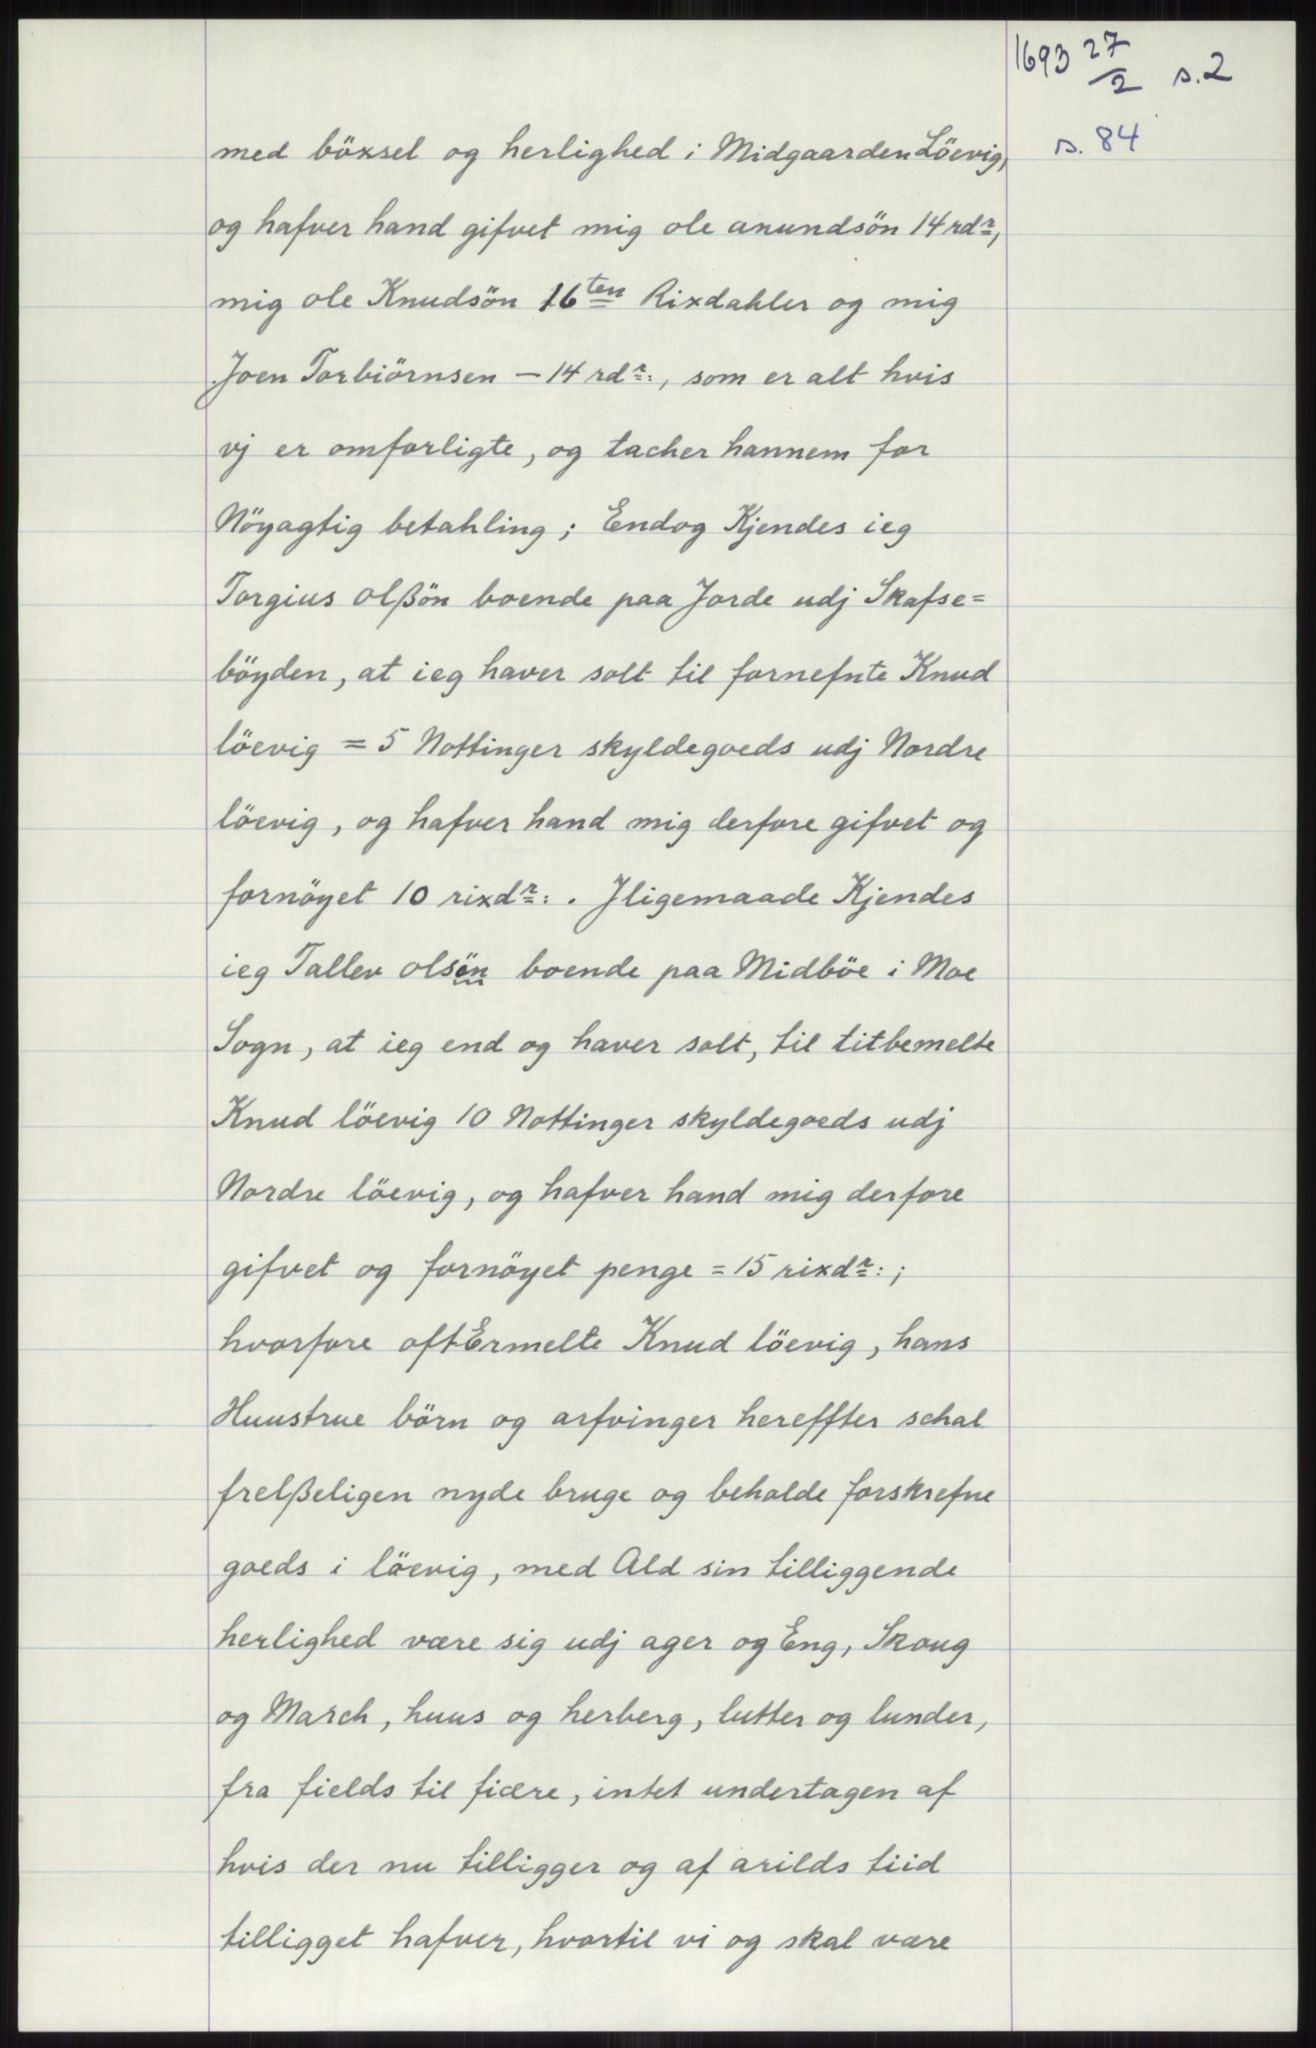 1693 27/2 s. 2
s. 84
med böxsel og herlighed i Midgaarden Löevig,
og hafver hand gifvet mig ole anundsön 14 rdr,
mig ole Knudsön 16ten Rixdahler og mig
Joen Torbiörnsen — 14 rdr:, som er alt hvis
vj er omforligte, og tacher hannem for
Nöyagtig betahling; Endog Kjendes ieg
Torgius olßön boende paa Jorde udj Skafse=
böyden, at ieg haver solt til fornefnte Knud
löevig = 5 Nottinger skyldegoeds udj Nordre
löevig, og hafver hand mig derfore gifvet og
fornöyet 10 rixdr: . Jligemaade Kjendes
ieg Tallev olsön boende paa Midböe i Moe
Sogn, at ieg end og haver solt, til titbemelte
Knud löevig 10 Nottinger skyldegoeds udj
Nordre löevig, og hafver hand mig derfore
gifvet og fornöyet penge = 15 rixdr: ;
hvorfore oftErmelte Knud löevig, hans
Huustrue börn og arfvinger hereffter schal
frelßeligen nyde bruge og beholde forskrefne
goeds i löevig, med Ald sin tilliggende
herlighed være sig udj ager og Eng, Skoug
og March, huus og herberg, lutter og lunder,
fra fields til fiære, intet undertagen af
hvis der nu tilligger og af arilds tiid
tilligget hafver, hvortil vi og skal være